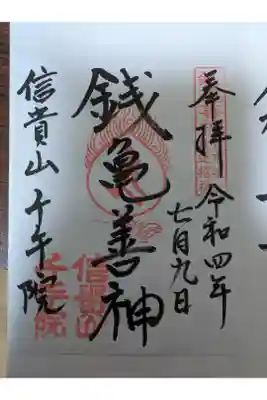 奉拝
令和四年
七月九日
銭亀善神
信貴山 千手院
信貴山
千手院